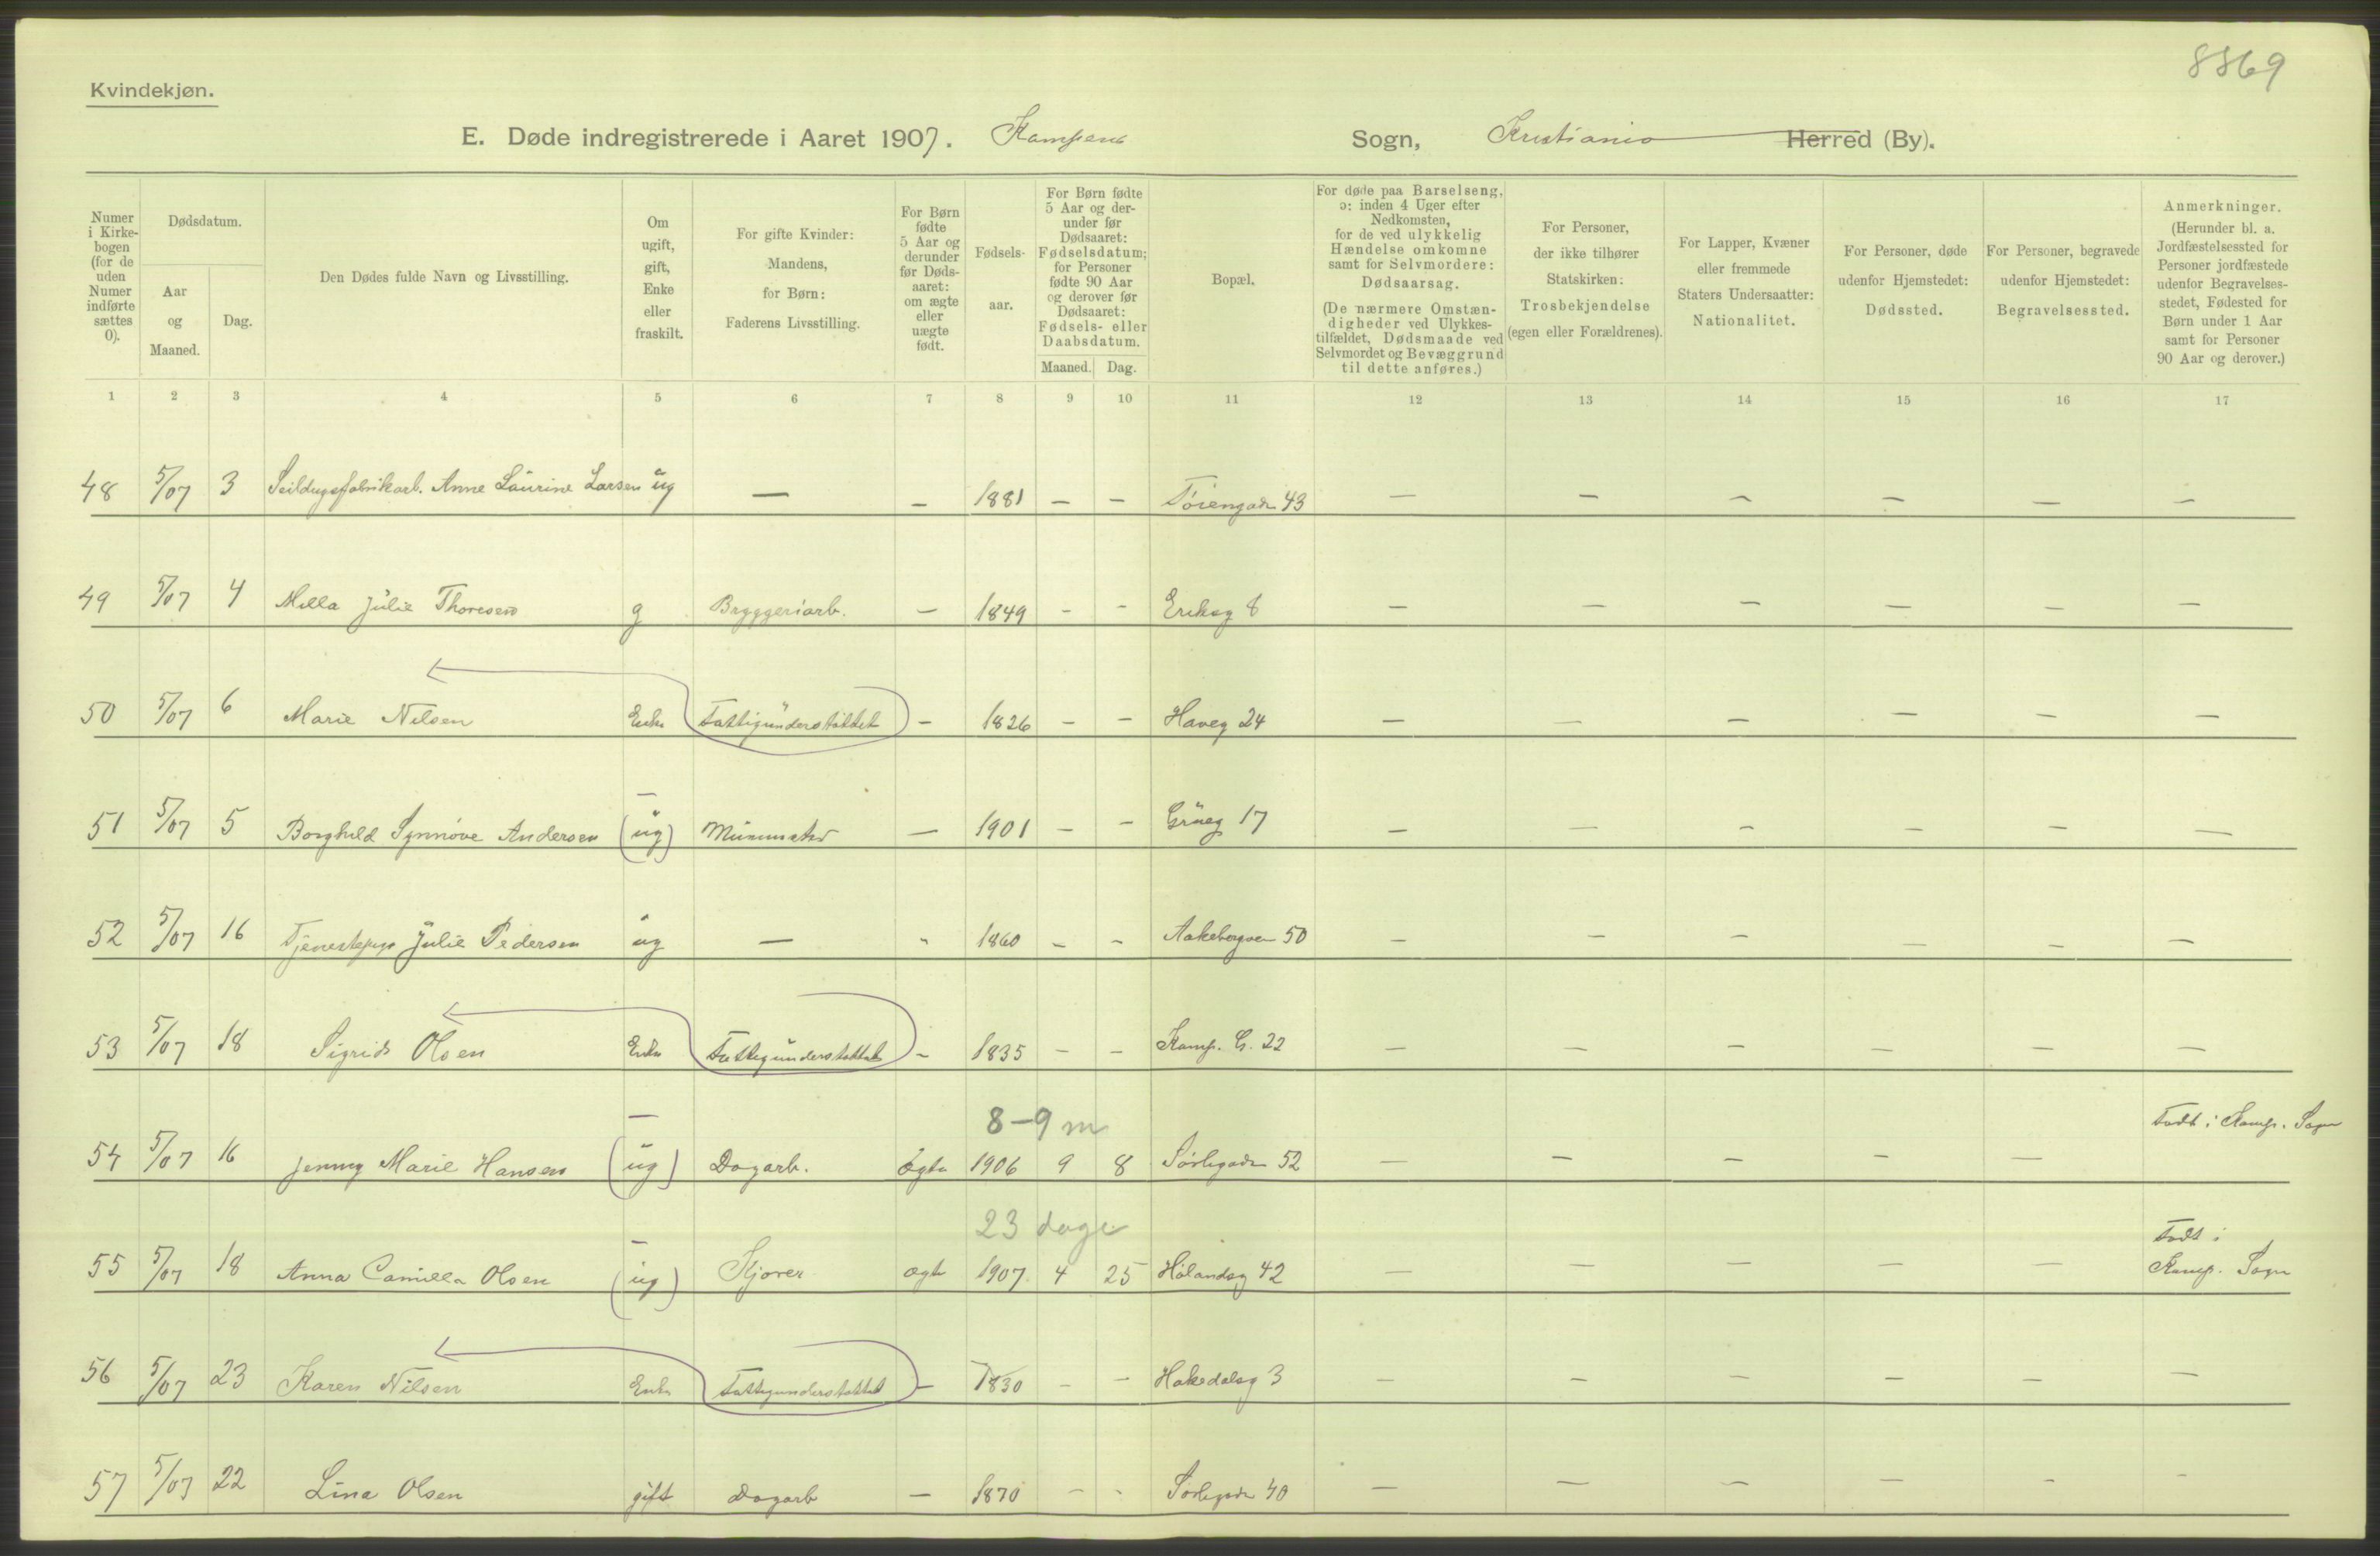 8869
Kvindekjøn.
E. Døde indregistrerede i Aaret 1907. Kampens Sogn, Kristiania Herred (By).
Numer i Kirkebogen (for de uden Numer indførte sættes 0).
Dødsdatum.
Aar og Maaned.
Dag.
Den Dødes fulde Navn og Livsstilling.
Om ugift, gift, Enke eller fraskilt.
For gifte Kvinder: Mandens, for Børn: Faderens Livsstilling.
For Børn fødte 5 Aar og derunder før Dødsaaret: om ægte eller uægte født.
Fødselsaar.
For Børn fødte 5 Aar og derunder før Dødsaaret: Fødselsdatum; for Personer fødte 90 Aar og derover før Dødsaaret: Fødsels- eller Daabsdatum.
Maaned. Dag.
Bopæl.
For døde paa Barselseng, ɔ: inden 4 Uger efter Nedkomsten, for de ved ulykkelig Hændelse omkomne samt for Selvmordere: Dødsaarsag. (De nærmere Omstændigheder ved Ulykkestilfældet, Dødsmaade ved Selvmordet og Bevæggrund til dette anføres.)
For Personer, der ikke tilhører Statskirken: Trosbekjendelse (egen eller Forældrenes).
For Lapper, Kvæner eller fremmede Staters Undersaatter: Nationalitet.
For Personer, døde udenfor Hjemstedet: Dødssted.
For Personer, begravede udenfor Hjemstedet: Begravelsessted.
Anmerkninger. (Herunder bl. a. Jordfæstelsessted for Personer jordfæstede udenfor Begravelsesstedet, Fødested for Børn under 1 Aar samt for Personer 90 Aar og derover.)
1 2 3 4 5 6 7 8 9 10 11 12 13 14 15 16 17
48 5/07 3 Seildugsfabrikarb. Anne Laurine Larsen ug — — 1881 — — Tøiengaden 43 — — — — — —
49 5/07 4 Milla Julie Thoresen g Bryggeriarb. — 1849 - - Eriksg 8 — — — — — —
50 5/07 6 Marie Nilsen Enke Fattigunderstøttet — 1826 — — Haveg 24 — — — — — —
51 5/07 5 Borghild Synnøve Andersen (ug) Murmester — 1901 — - Grüeg 17 — — — — — —
52 5/07 16 Tjenestepige Julie Pedersen ug — - 1860 — - Aakebergveien 50 — — — — — —
53 5/07 18 Sigrid Olsen Enke Fattigunderstøttet - 1835 — — Kamp. G. 22 — — — — — —
8-9 m
54 5/07 16 Jenny Marie Hansen (ug) Dagarb. ægte 1906 9 8 Sørligaden 52 — — — — — Født i Kamp. Sogn
23 dage
55 5/07 18 Anna Camilla Olsen (ug) Kjører ægte 1907 4 25 Hølandsg 42 — — — — — Født i
Kamp. Sogn
56 5/07 23 Karen Nilsen Enke Fattigunderstøttet - 1830 - - Hakedalsg 3 — — — — — —
57 5/07 22 Lina Olsen gift Dagarb — 1870 - - Sørligaden 40 — — — — - -